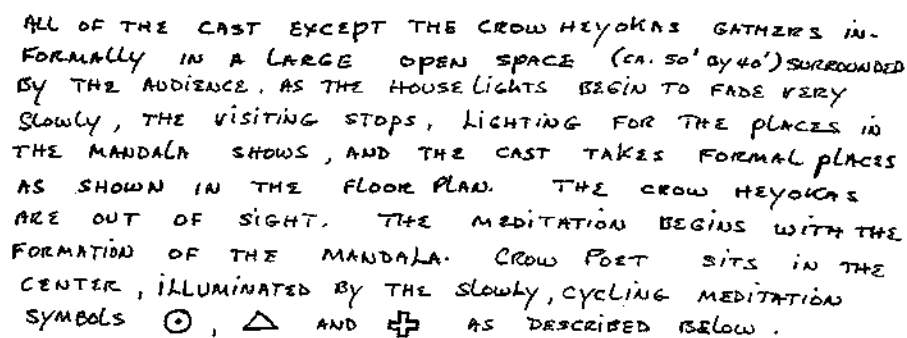 ALL OF THE CAST EXCEPT THE CROW HEYOKAS GATHERS IN-
FORMALLY IN A LARGE OPEN SPACE (CA. 50' BY 40') SURROUNDED
BY THE AUDIENCE. AS THE HOUSE LIGHTS BEGIN TO FADE VERY
SLOWLY, THE VISITING STOPS, LIGHTING FOR THE PLACES IN
THE MANDALA SHOWS, AND THE CAST TAKES FORMAL PLACES
AS SHOWN IN THE FLOOR PLAN. THE CROW HEYOKAS
ARE OUT OF SIGHT. THE MEDITATION BEGINS WITH THE
FORMATION OF THE MANDALA. CROW POET SITS IN THE
CENTER, ILLUMINATED BY THE SLOWLY, CYCLING MEDITATION
SYMBOLS ☉, △ AND ✚ AS DESCRIBED BELOW.